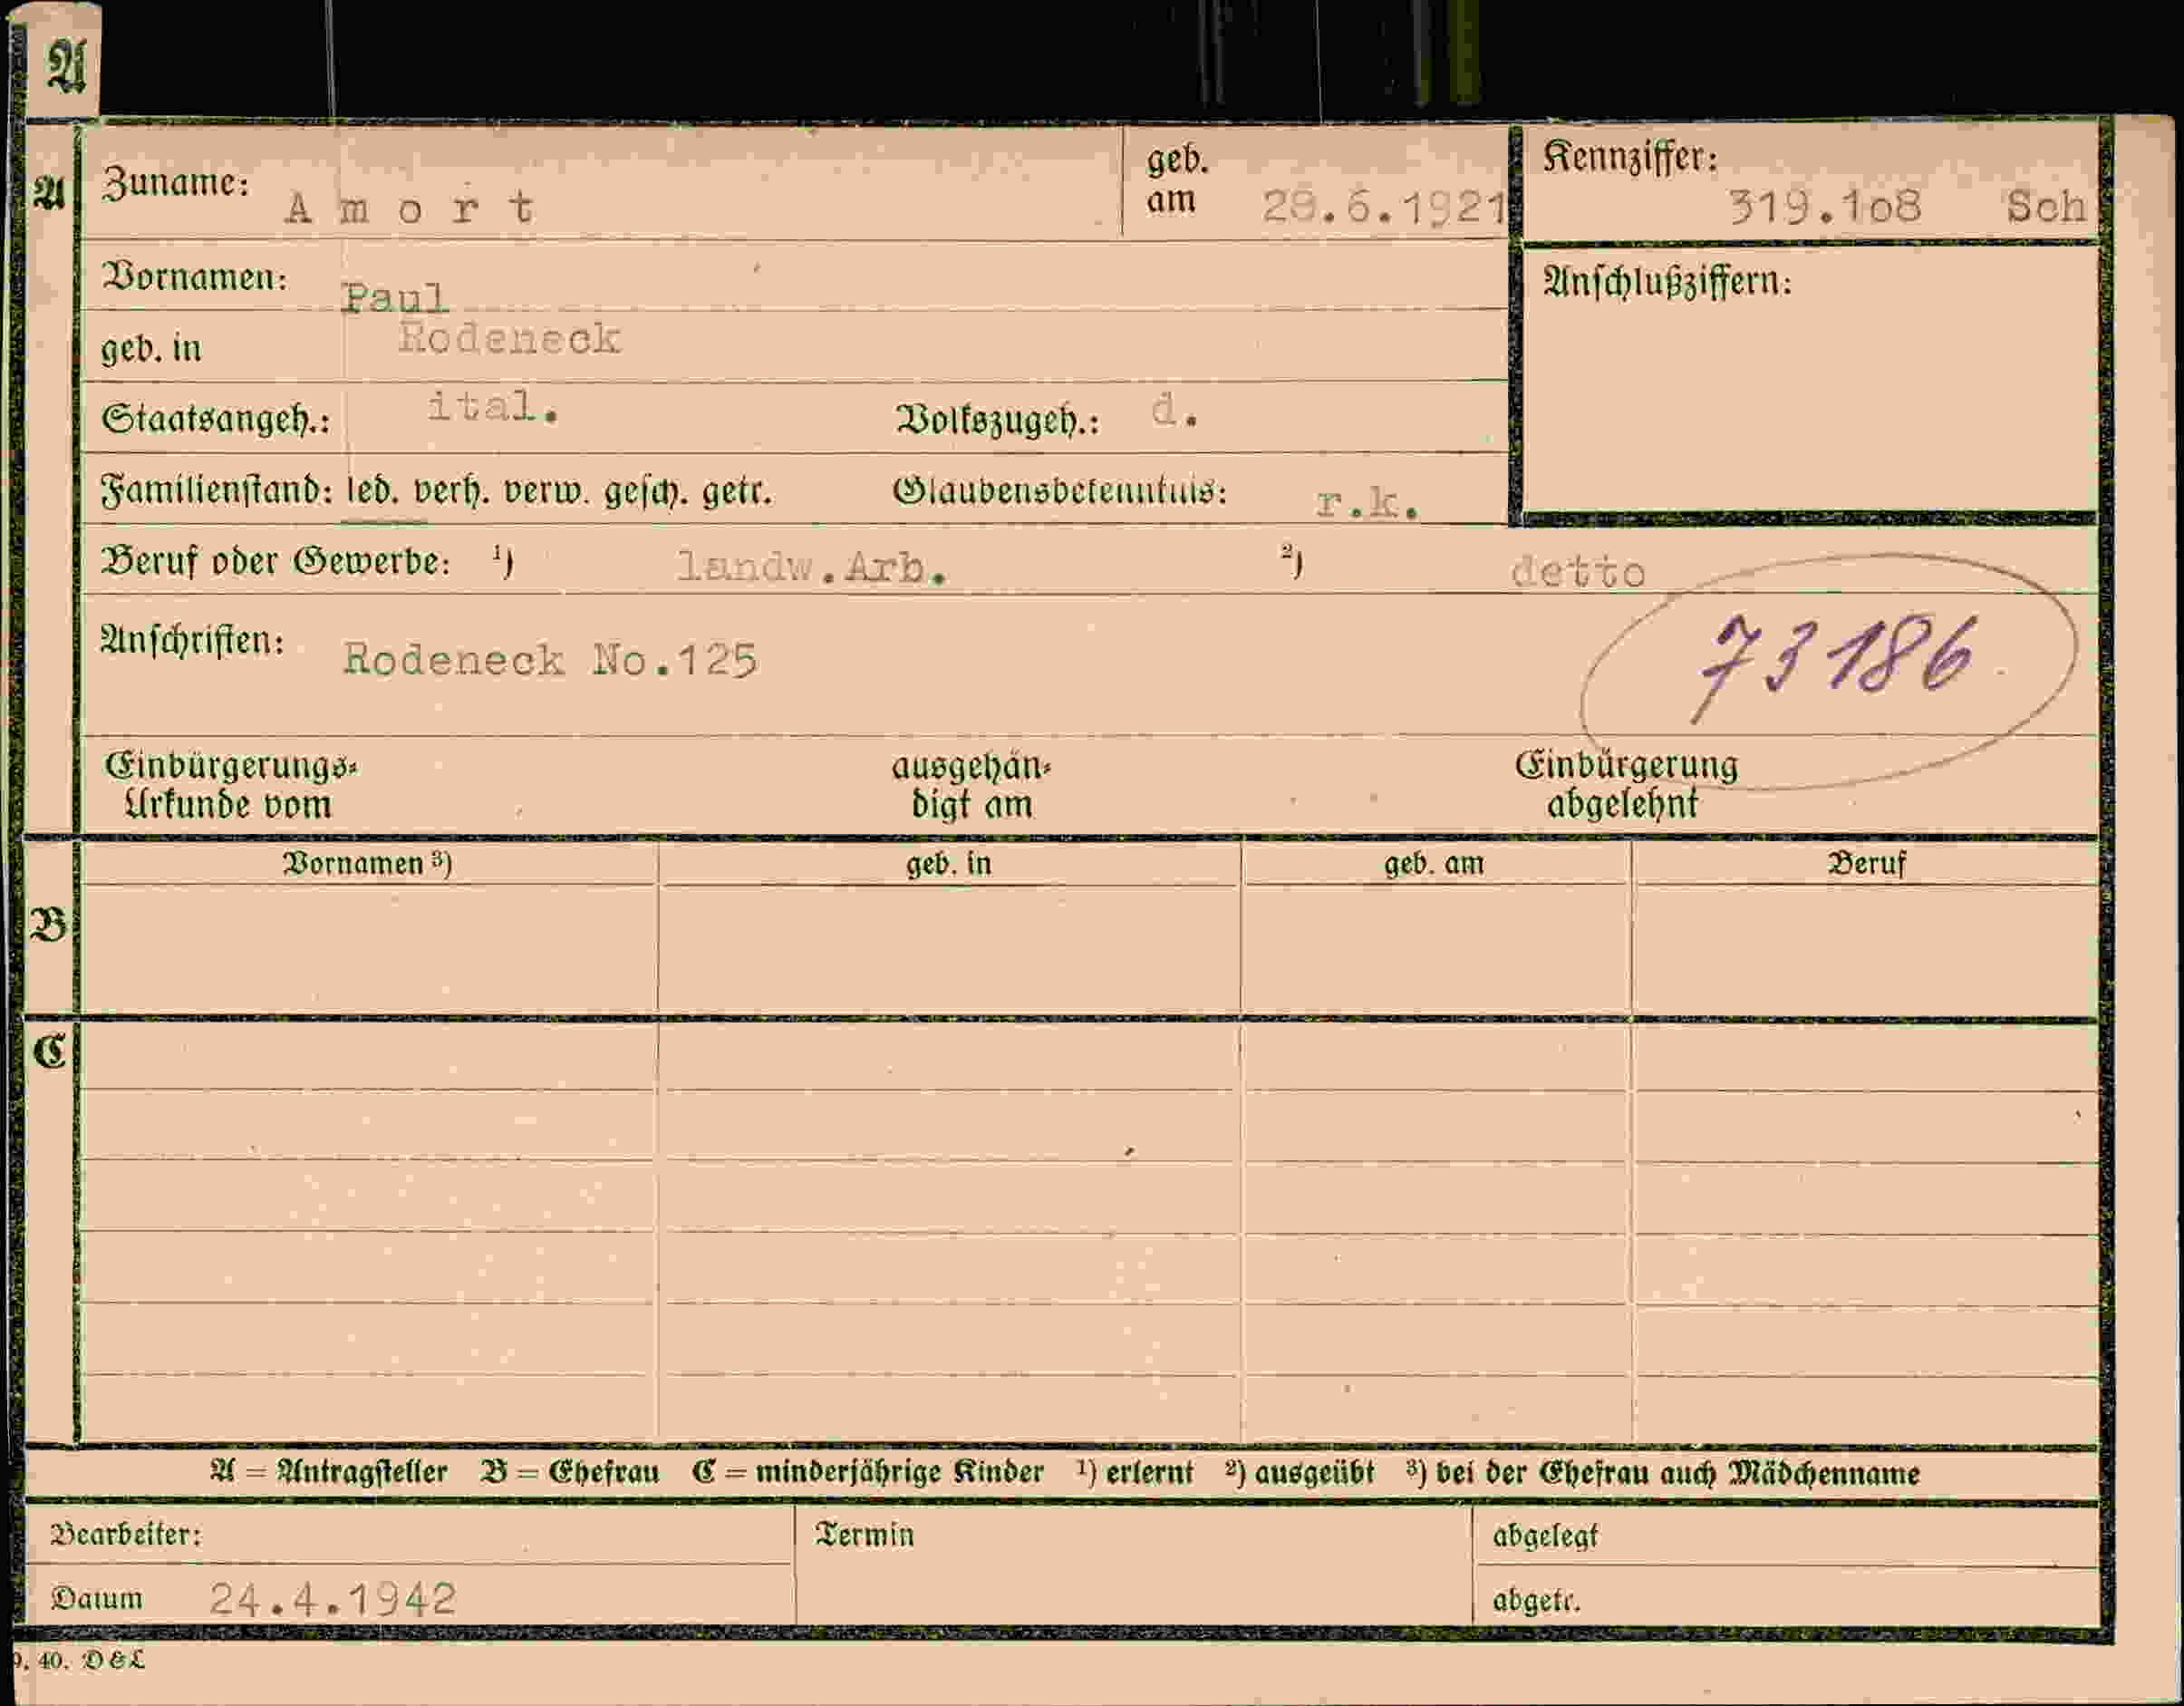 A
A
Zuname: A m o r t geb. am 28.6.1921 Kennziffer: 319.1o8 Sch
Vornamen: Paul Anschlußziffern:
geb. in Rodeneck
Staatsangeh.: ital. Volkszugeh.: d.
Familienstand: led. verh. verw. gesch. getr. Glaubensbekenntnis: r.k.
Beruf oder Gewerbe: ¹) landw.Arb. ²) detto
Anschriften: Rodeneck No.125 73186
Einbürgerungs- ausgehän- Einbürgerung
Urkunde vom digt am abgelehnt
Vornamen ³) geb. in geb. am Beruf
B
C
A = Antragsteller B = Ehefrau C = minderjährige Kinder ¹) erlernt ²) ausgeübt ³) bei der Ehefrau auch Mädchenname
Bearbeiter: Termin abgelegt
Datum 24.4.1942 abgetr.
9. 40. D&L